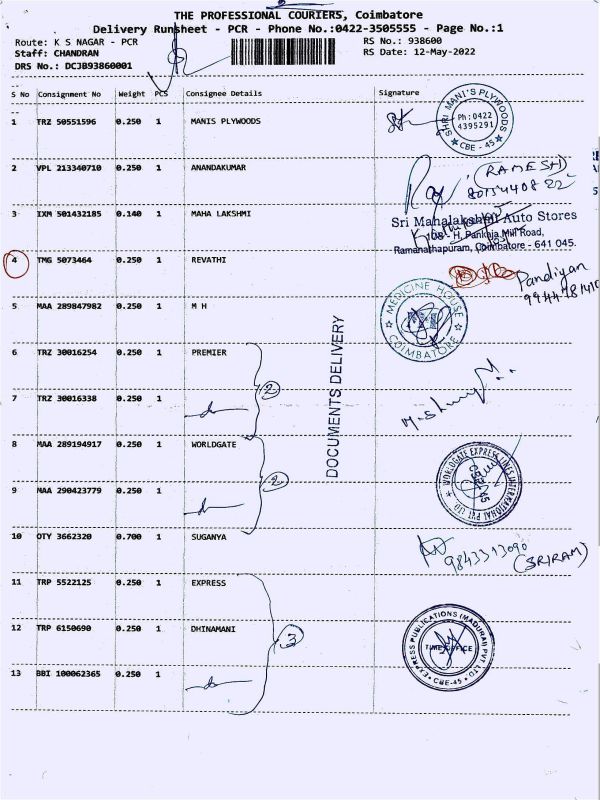 THE PROFESSIONAL COURIERS, Coimbatore
Delivery Runsheet - PCR - Phone No.:0422-3505555 - Page No.:1
Route: K S NAGAR - PCR
RS No.: 938600
Staff: CHANDRAN
RS Date: 12-May-2022
DRS No.: DCJB93860001
S No Consignment No Weight PCS Consignee Details Signature
1 TRZ 50551596 0.250 1 MANIS PLYWOODS
SHRI MANI'S PLYWOODS
Ph: 0422
4395291
CBE - 45
2 VPL 213340710 0.250 1 ANANDAKUMAR
(RAMESH)
3 IXM 501432185 0.140 1 MAHA LAKSHMI
Sri Mahalakshmi Auto Stores
108 - H, Pankaja Mill Road,
Ramanathapuram, Coimbatore - 641 045.
4 TMG 5073464 0.250 1 REVATHI
Pandiyan
5 MAA 289847982 0.250 1 M H
MEDICINE HOUSE
COIMBATORE
DOCUMENTS DELIVERY
6 TRZ 30016254 0.250 1 PREMIER
2
7 TRZ 30016338 0.250 1
8 MAA 289194917 0.250 1 WORLDGATE
2
WORLDGATE EXPRESS LINES INTERNATIONAL PVT LTD
9 MAA 290423779 0.250 1
10 OTY 3662320 0.700 1 SUGANYA
9843313090
(SRIRAM)
11 TRP 5522125 0.250 1 EXPRESS
12 TRP 6150690 0.250 1 DHINAMANI
3
EXPRESS PUBLICATIONS (MADURAI) PVT LTD
TIME OFFICE
CBE-45
13 BBI 100062365 0.250 1